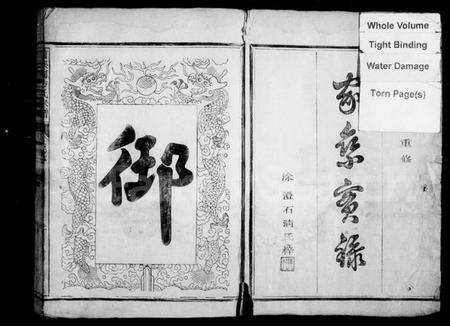 Whole Volume
Tight Binding
Water Damage
Torn Page(s)
重修
家乘實錄
御